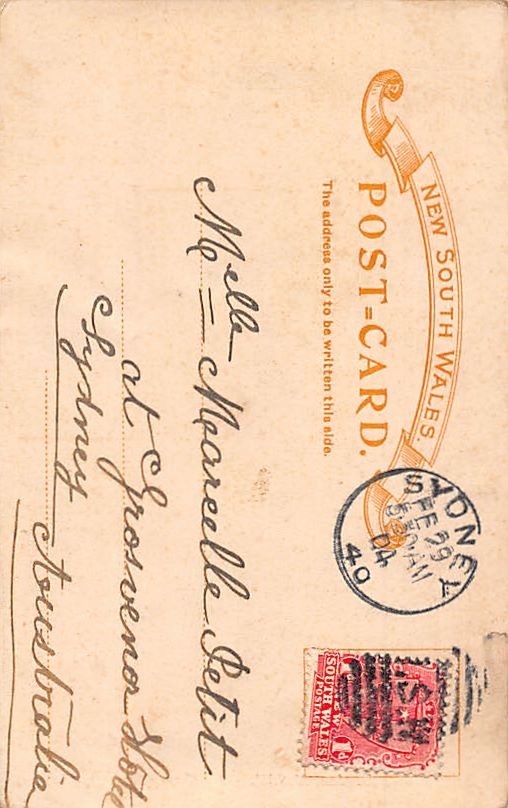 NEW SOUTH WALES.
POST=CARD.
The address only to be written this side.
SYDNEY
FE 29
5 30 AM
04
40
NEW
SOUTH WALES
POSTAGE
1d
NSW
Melle Marcelle Petit
at Grosvenor Hotel
Sydney
Australia